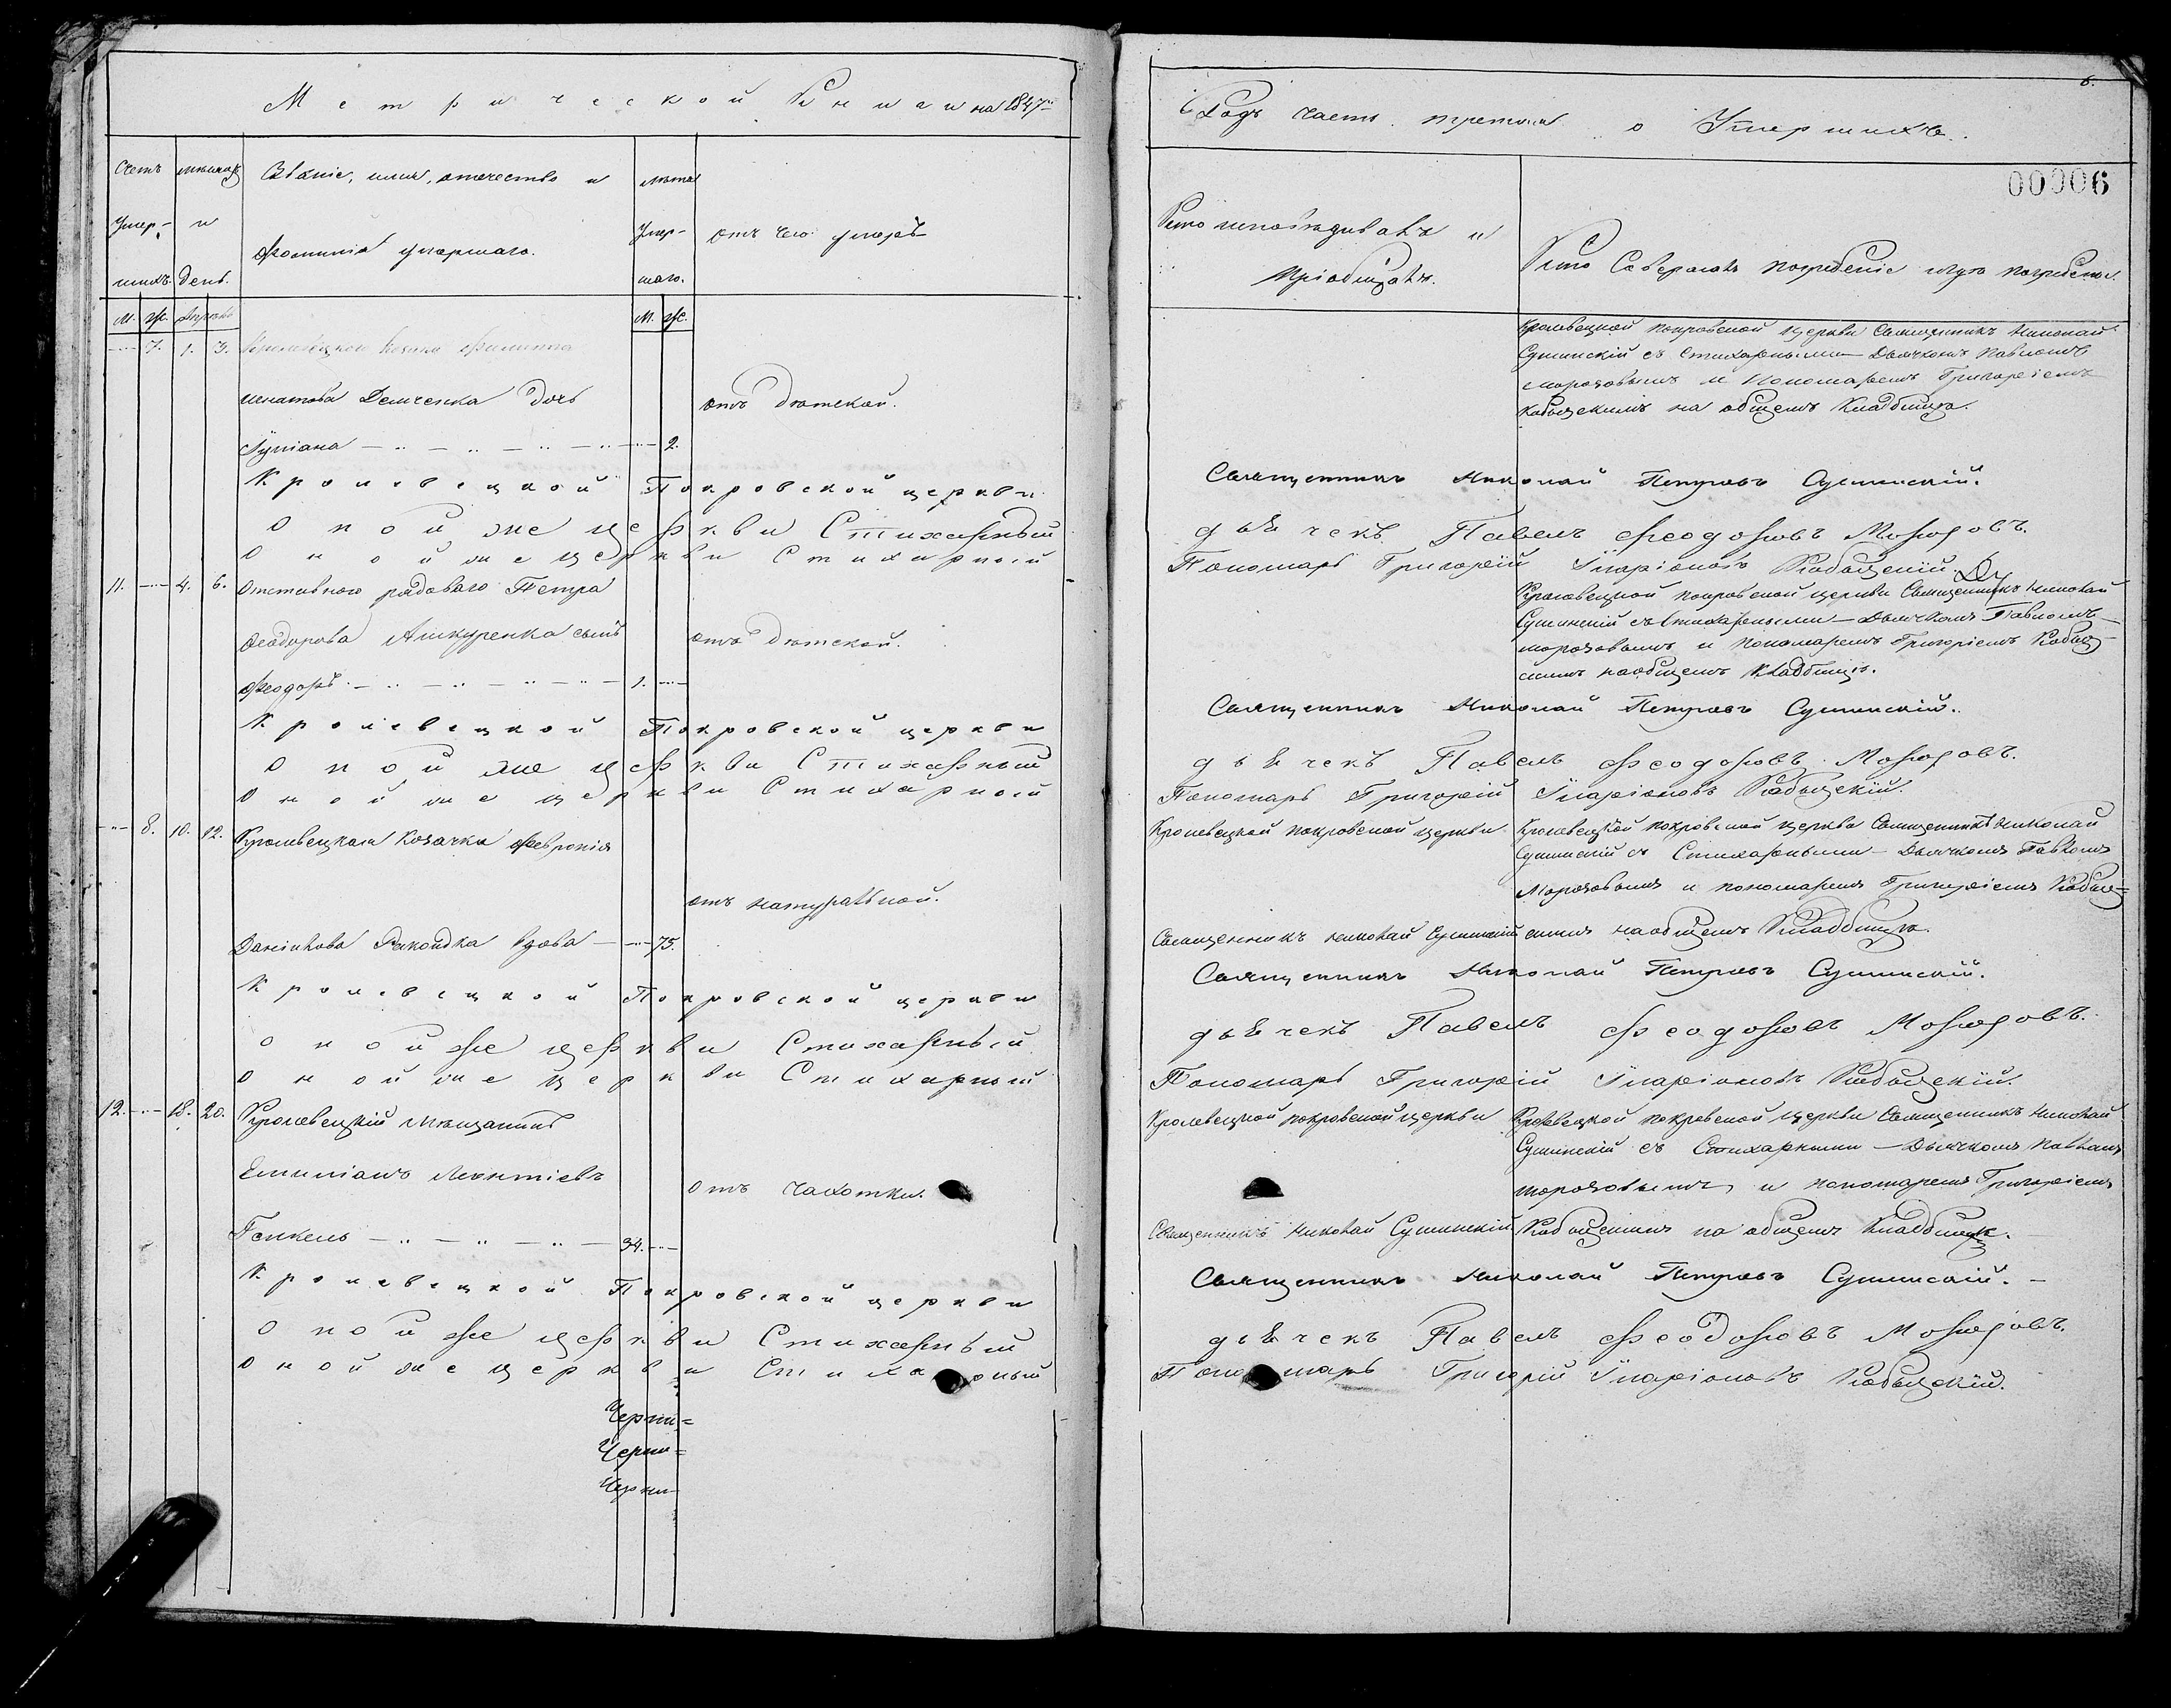 Метрической Книги на 1847й
Годъ часть третья о Умершихъ.
6.
00006
Счетъ Умер-шихъ.
мѣсяцъ и День.
Званіе, имя, отечество и Фамилія умершаго.
лѣта Умер-шаго.
отъ чего умеръ
Кто исповѣдивалъ и пріобщалъ.
Кто Совершалъ погребеніе и гдѣ погребены.
М. Ж. Апрѣль
М. Ж.
7. 1. 3. Кролевецкого козака Филиппа
Игнатова Демченка Дочь
отъ дѣтской.
Іуліана 2.
Кролевецкой покровской церкви Священникъ Николай
Сушинскій съ Стихарными Дьячкомъ Павломъ
Морозовымъ и Пономаремъ Григоріемъ
Кобыщскимъ на общемъ Кладбищѣ.
Кролевецкой Покровской церкви Священникъ Николай Петровъ Сушинскій.
Оной же церкви Стихарный дьячекъ Павелъ Феодоровъ Морозовъ.
Оной же церкви Стихарный Пономарь Григорій Иларіоновъ Кобыщскій
11. 4. 6. Отставного рядоваго Петра
Феодорова Ашкуренка сынъ
отъ дѣтской.
Феодоръ 1.
Кролевецкой покровской церкви Священникъ Николай
Сушинскій съ Стихарными Дьячкомъ Павломъ
Морозовымъ и пономаремъ Григоріемъ Кобыщ-
скимъ на общемъ Кладбищѣ.
Кролевецкой Покровской церкви Священникъ Николай Петровъ Сушинскій.
Оной же церкви Стихарный дьячекъ Павелъ Феодоровъ Морозовъ.
Оной же церкви Стихарный Пономарь Григорій Иларіоновъ Кобыщскій.
8. 10. 12. Кролевецкая Козачка Февронія
Даніилова Ракоидка вдова 75.
отъ натуральной.
Кролевецкой покровской церкви
Священникъ Николай Сушинскій
Кролевецкой покровской церкви Священникъ Николай
Сушинскій съ Стихарными Дьячкомъ Павломъ
Морозовымъ и пономаремъ Григоріемъ Кобыщ=
скимъ на общемъ Кладбищѣ.
Кролевецкой Покровской церкви Священникъ Николай Петровъ Сушинскій.
Оной же церкви Стихарный дьячекъ Павелъ Феодоровъ Морозовъ.
Оной же церкви Стихарный Пономарь Григорій Иларіоновъ Кобыщскій.
12. 18. 20. Кролевецкій Мѣщанинъ
Емиліанъ Леонтіевъ
отъ чахотки.
Генкель 34.
Кролевецкой покровской церкви
Священникъ Николай Сушинскій
Кролевецкой покровской церкви Священникъ Николай
Сушинскій съ Стихарными Дьячкомъ Павломъ
Морозовымъ и пономаремъ Григоріемъ
Кобыщскимъ на общемъ Кладбищѣ.
Кролевецкой Покровской церкви Священникъ Николай Петровъ Сушинскій.
Оной же церкви Стихарный дьячекъ Павелъ Феодоровъ Морозовъ.
Оной же церкви Стихарный Пономарь Григорій Иларіоновъ Кобыщскій.
Черни=
Черни=
Черни-